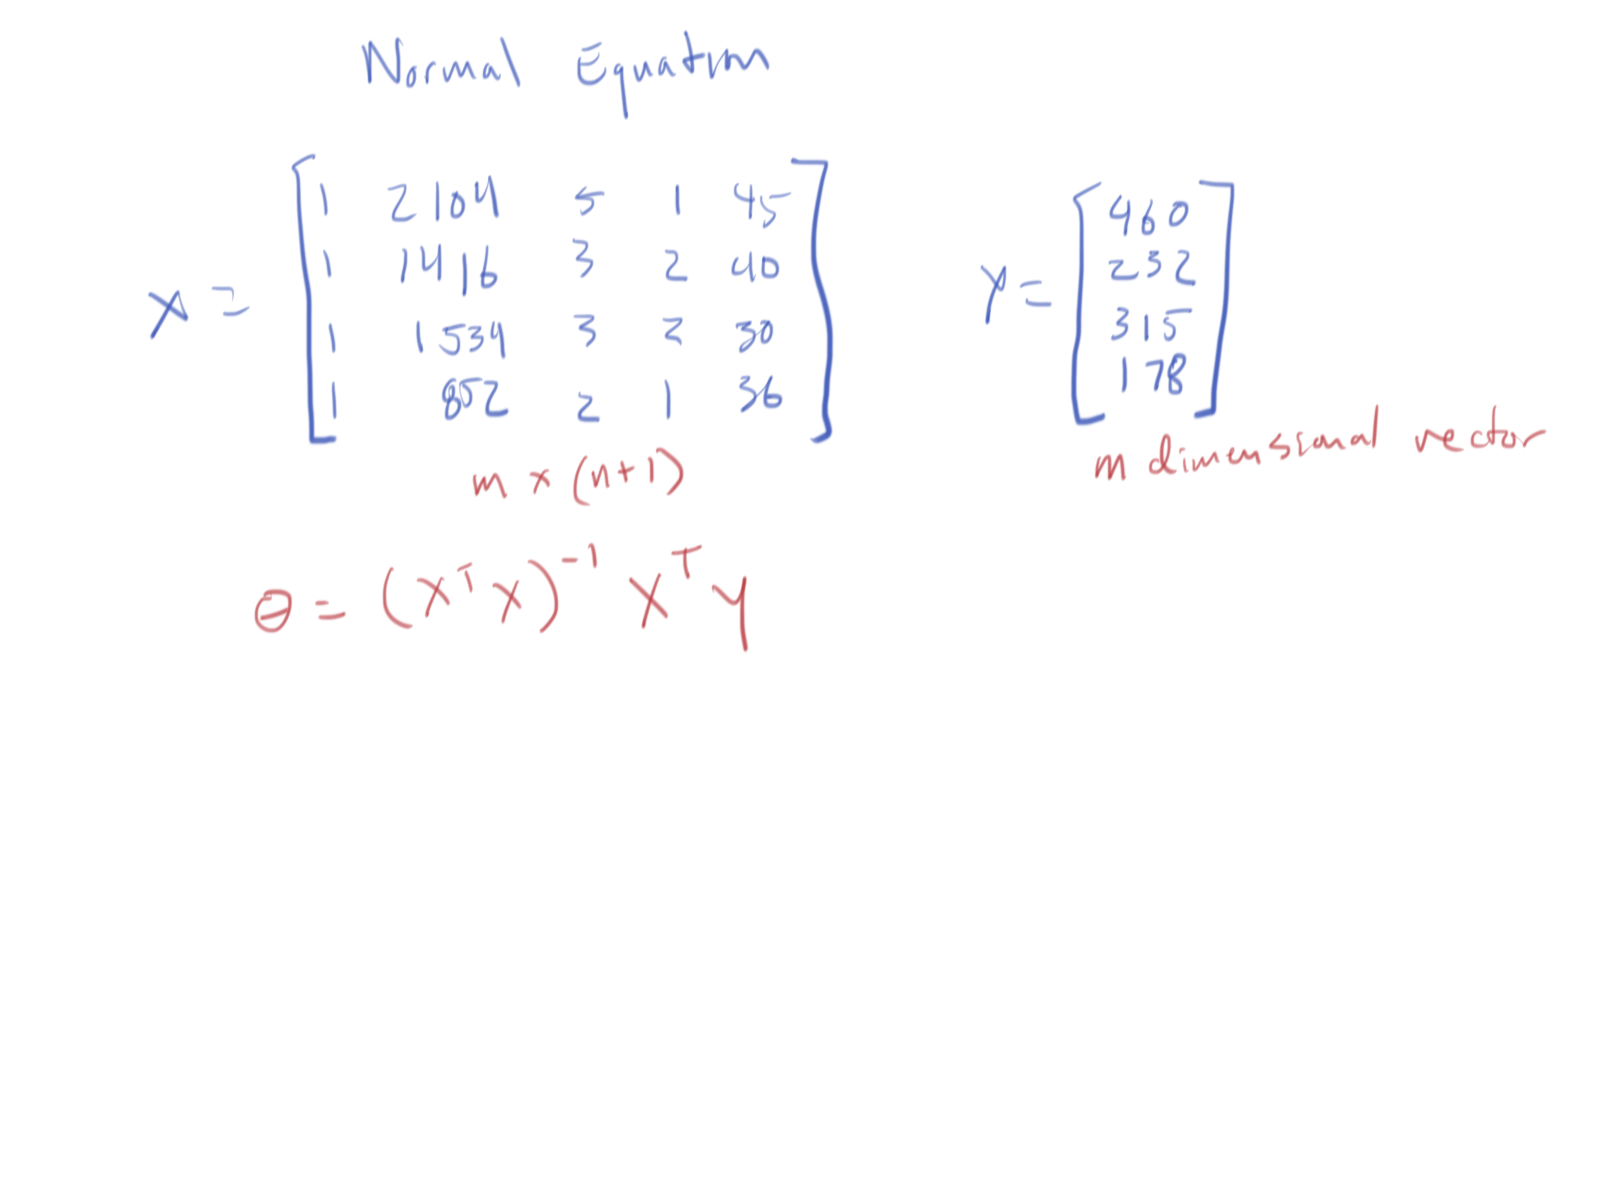 Normal Equation
X = [ 1 2104 5 1 45
1 1416 3 2 40
1 1534 3 2 30
1 852 2 1 36 ]
m × (n+1)
y = [ 460
232
315
178 ]
m dimensional vector
θ = (XᵀX)⁻¹ Xᵀy